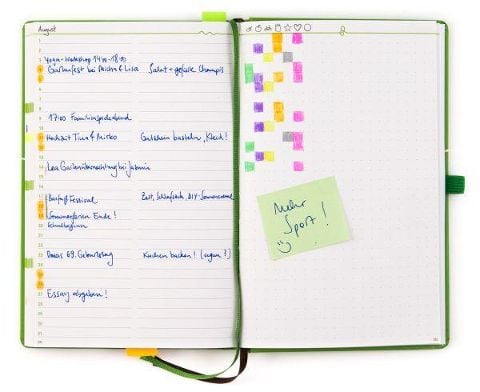 August
Yoga-Workshop 14⁰⁰-18:00
Gartenfest bei Micha & Lisa Salat + gefüllte Champis
17:00 Familienspieleabend
Hochzeit Tina & Mirko Gutschein basteln, Kleid!
Lea Gartenübernachtung bei Jasmin
Barfuß Festival Zelt, Schlafsack, DIY-Sonnencreme
Sommerferien Ende!
Schulbeginn
69. Geburtstag Kuchen backen! (vegan?)
Essay abgeben!
Mehr
Sport!